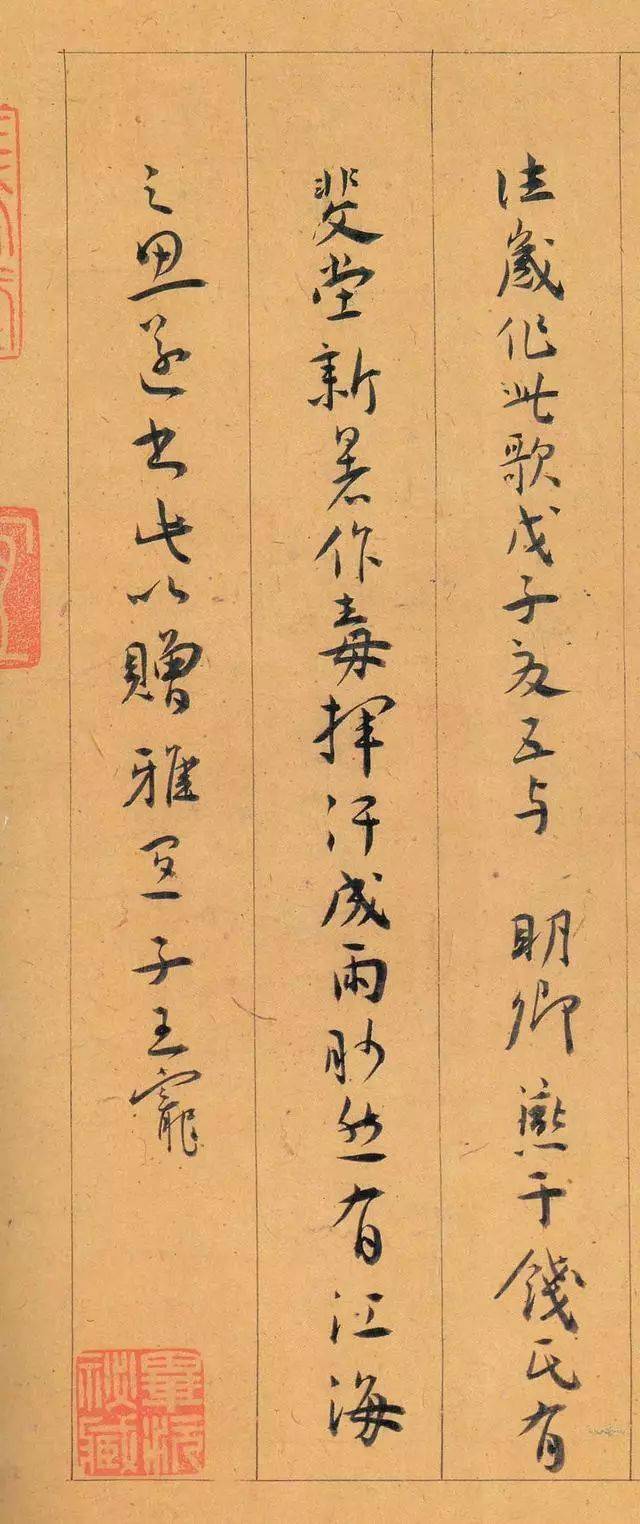 往歲作此歌戊子夏五与 明卿燕于錢氏有
斐堂新暑作毒揮汗成雨眇然有江海
之思遂書此以贈雅宜子王寵
畢沅秘藏